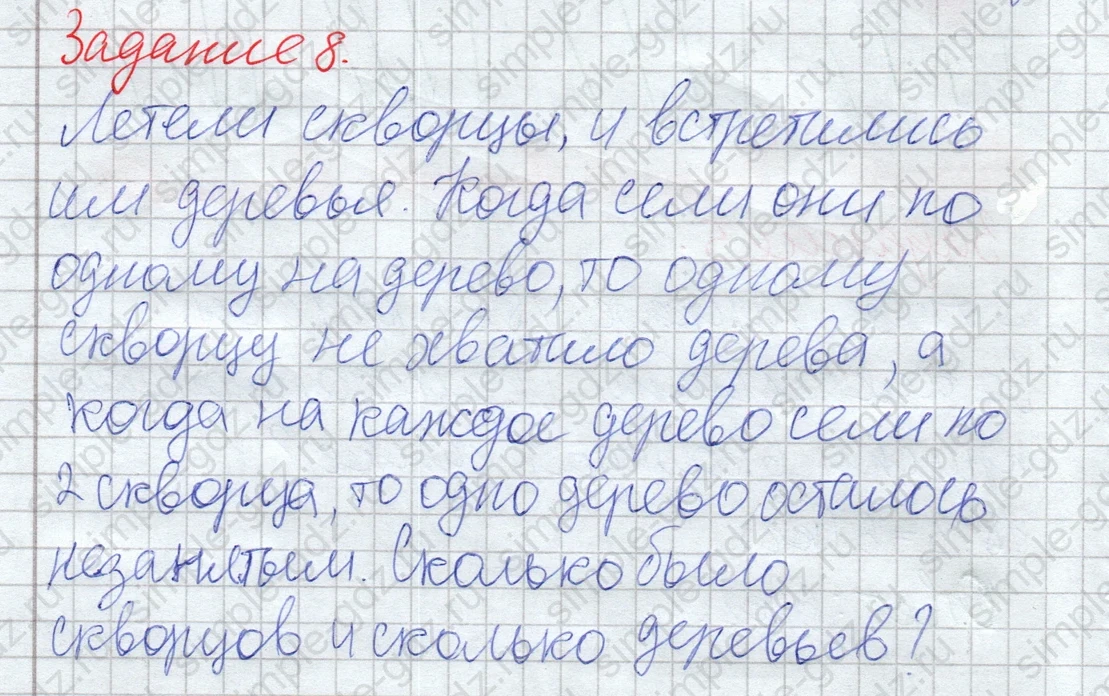 Задание 8.
Летели скворцы, и встретились
им деревья. Когда сели они по
одному на дерево, то одному
скворцу не хватило дерева, а
когда на каждое дерево сели по
2 скворца, то одно дерево осталось
незанятым. Сколько было
скворцов и сколько деревьев?